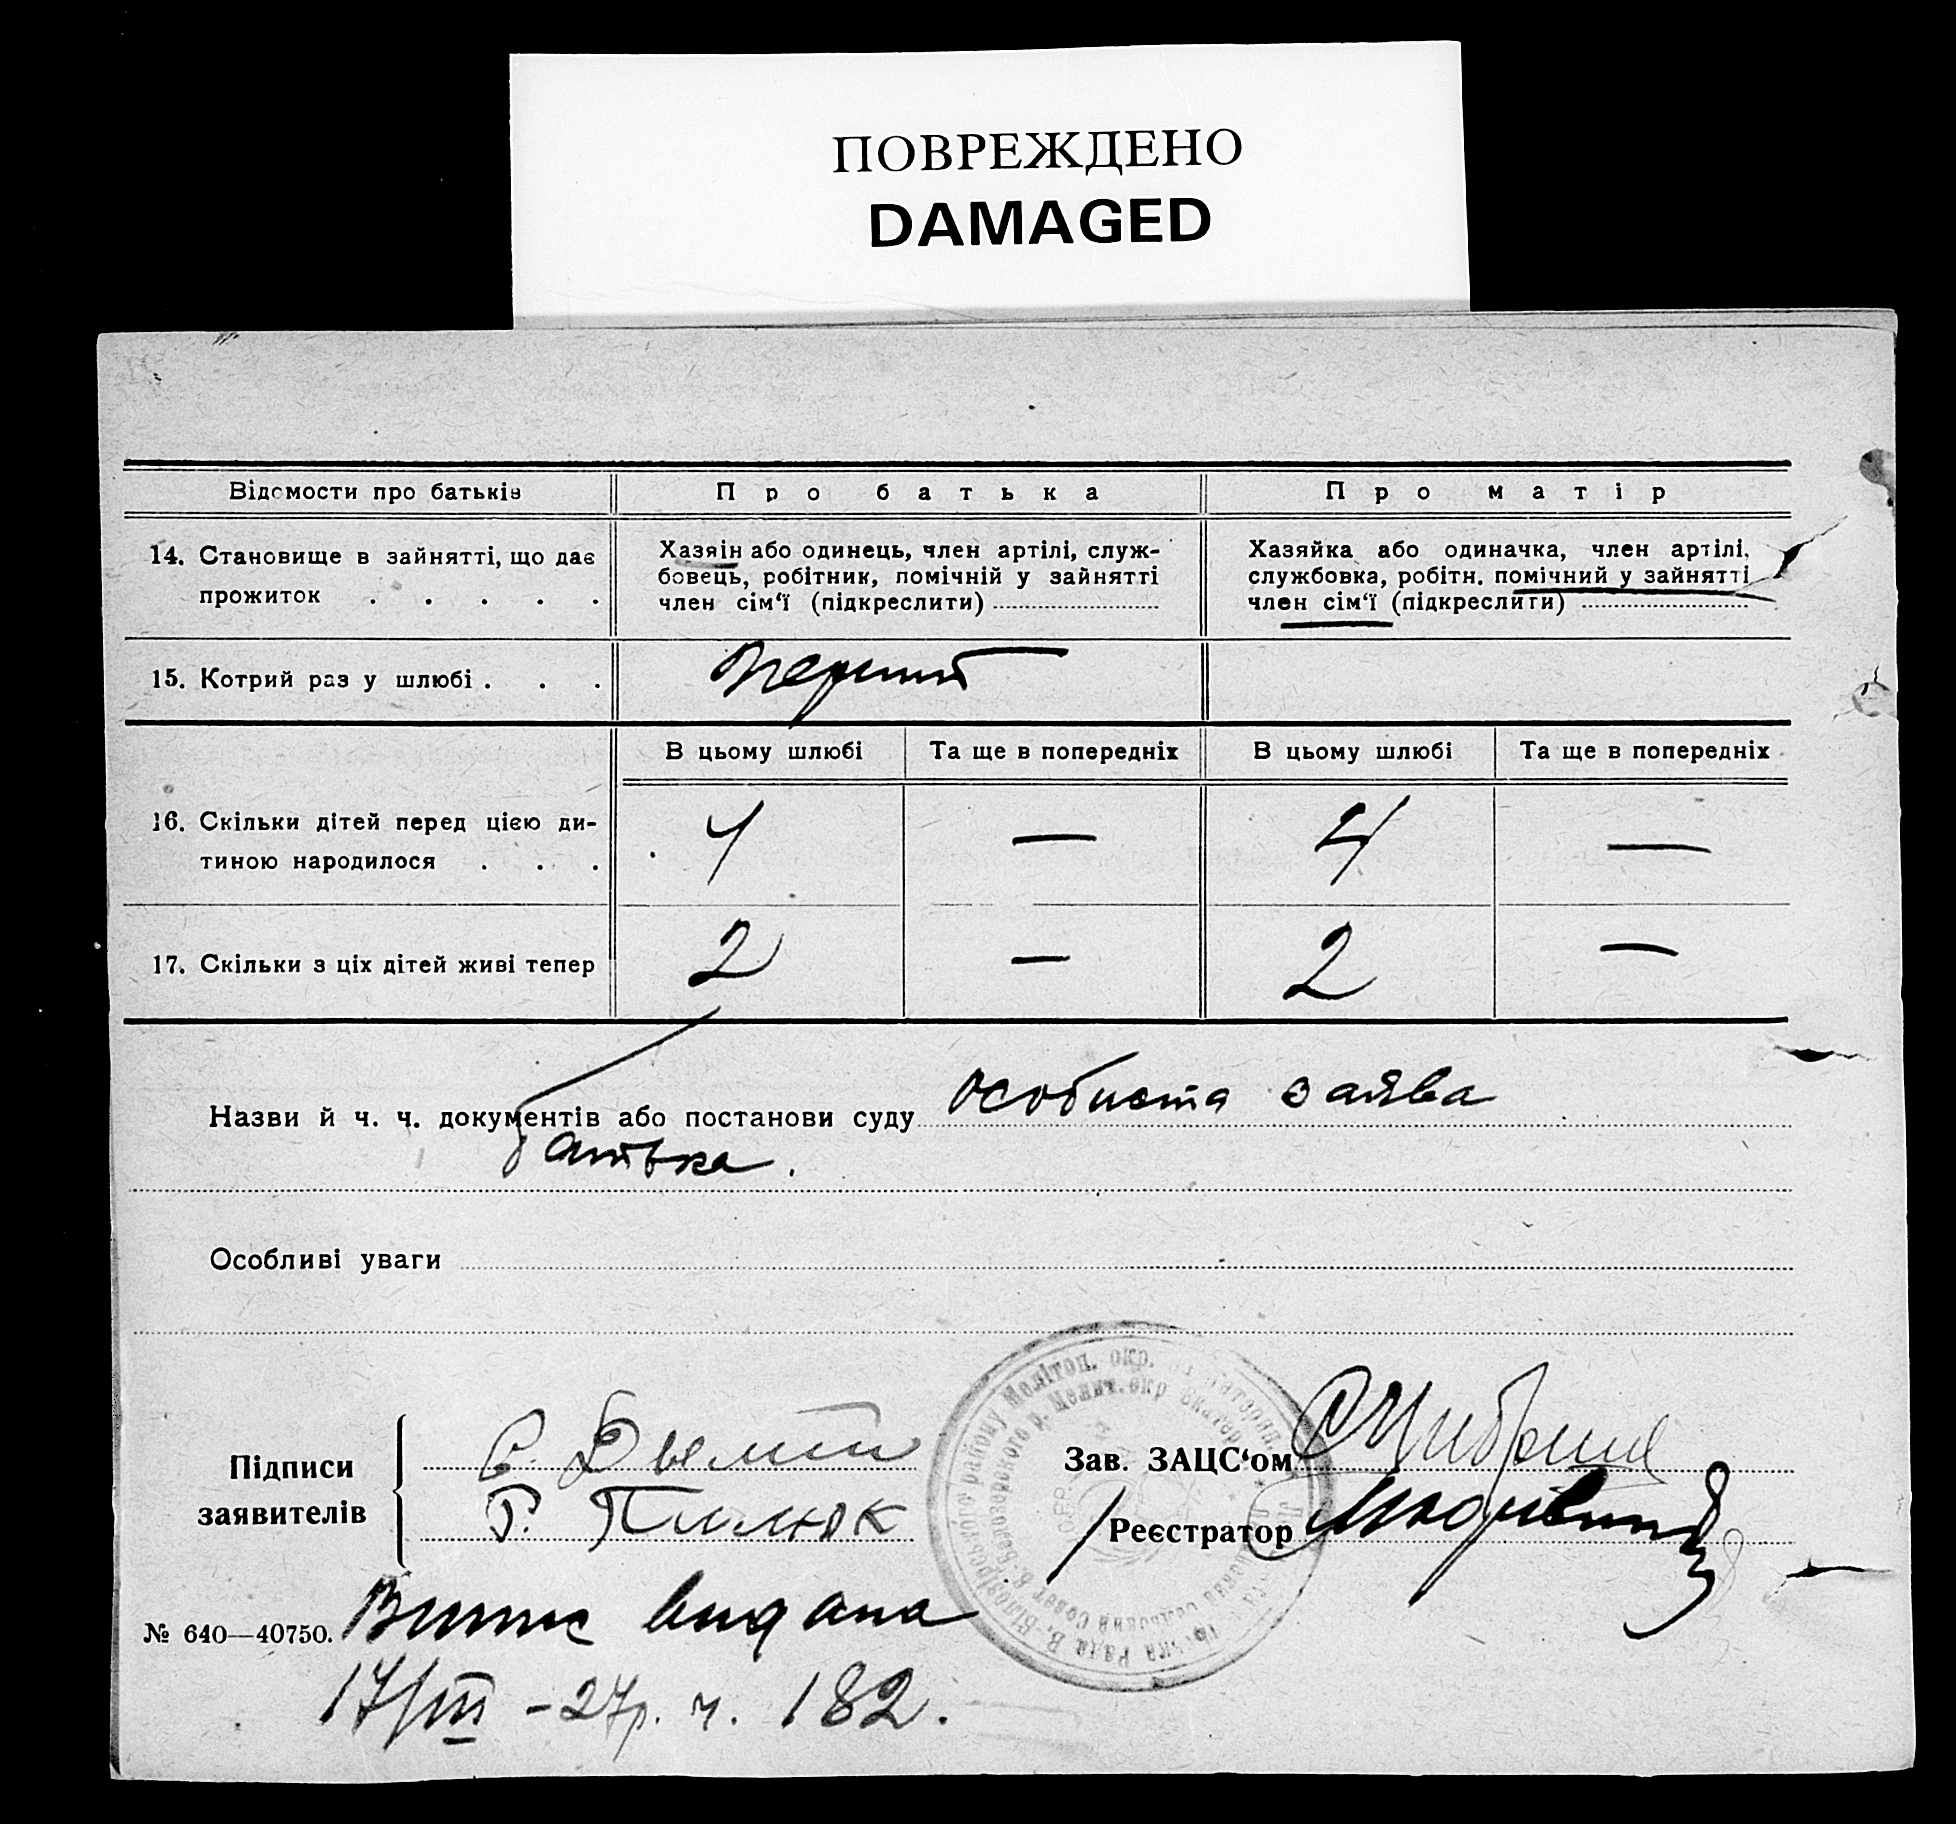 ПОВРЕЖДЕНО
DAMAGED
Відомости про батьків
Про батька
Про матір
14. Становище в зайнятті, що дає
прожиток . . . . .
Хазяін або одинець, член артілі, служ-
бовець, робітник, помічній у зайнятті
член сім‘ї (підкреслити)
Хазяйка або одиначка, член артілі,
службовка, робітн. помічний у зайнятті
член сім‘ї (підкреслити)
15. Котрий раз у шлюбі . . .
Перший
В цьому шлюбі
Та ще в попередніх
В цьому шлюбі
Та ще в попередніх
16. Скільки дітей перед цією ди-
тиною народилося . . .
4 — 4 —
17. Скільки з ціх дітей живі тепер
2 — 2 —
Назви й ч. ч. документів або постанови суду особиста заява
батька.
Особливі уваги
Підписи
заявителів
С. Дымт
Г. Пилюк
Зав. ЗАЦС‘ом
Реєстратор
району Мелітоп. окр.
№ 640—40750. Витис видана
17/III – 27р. ч. 182.